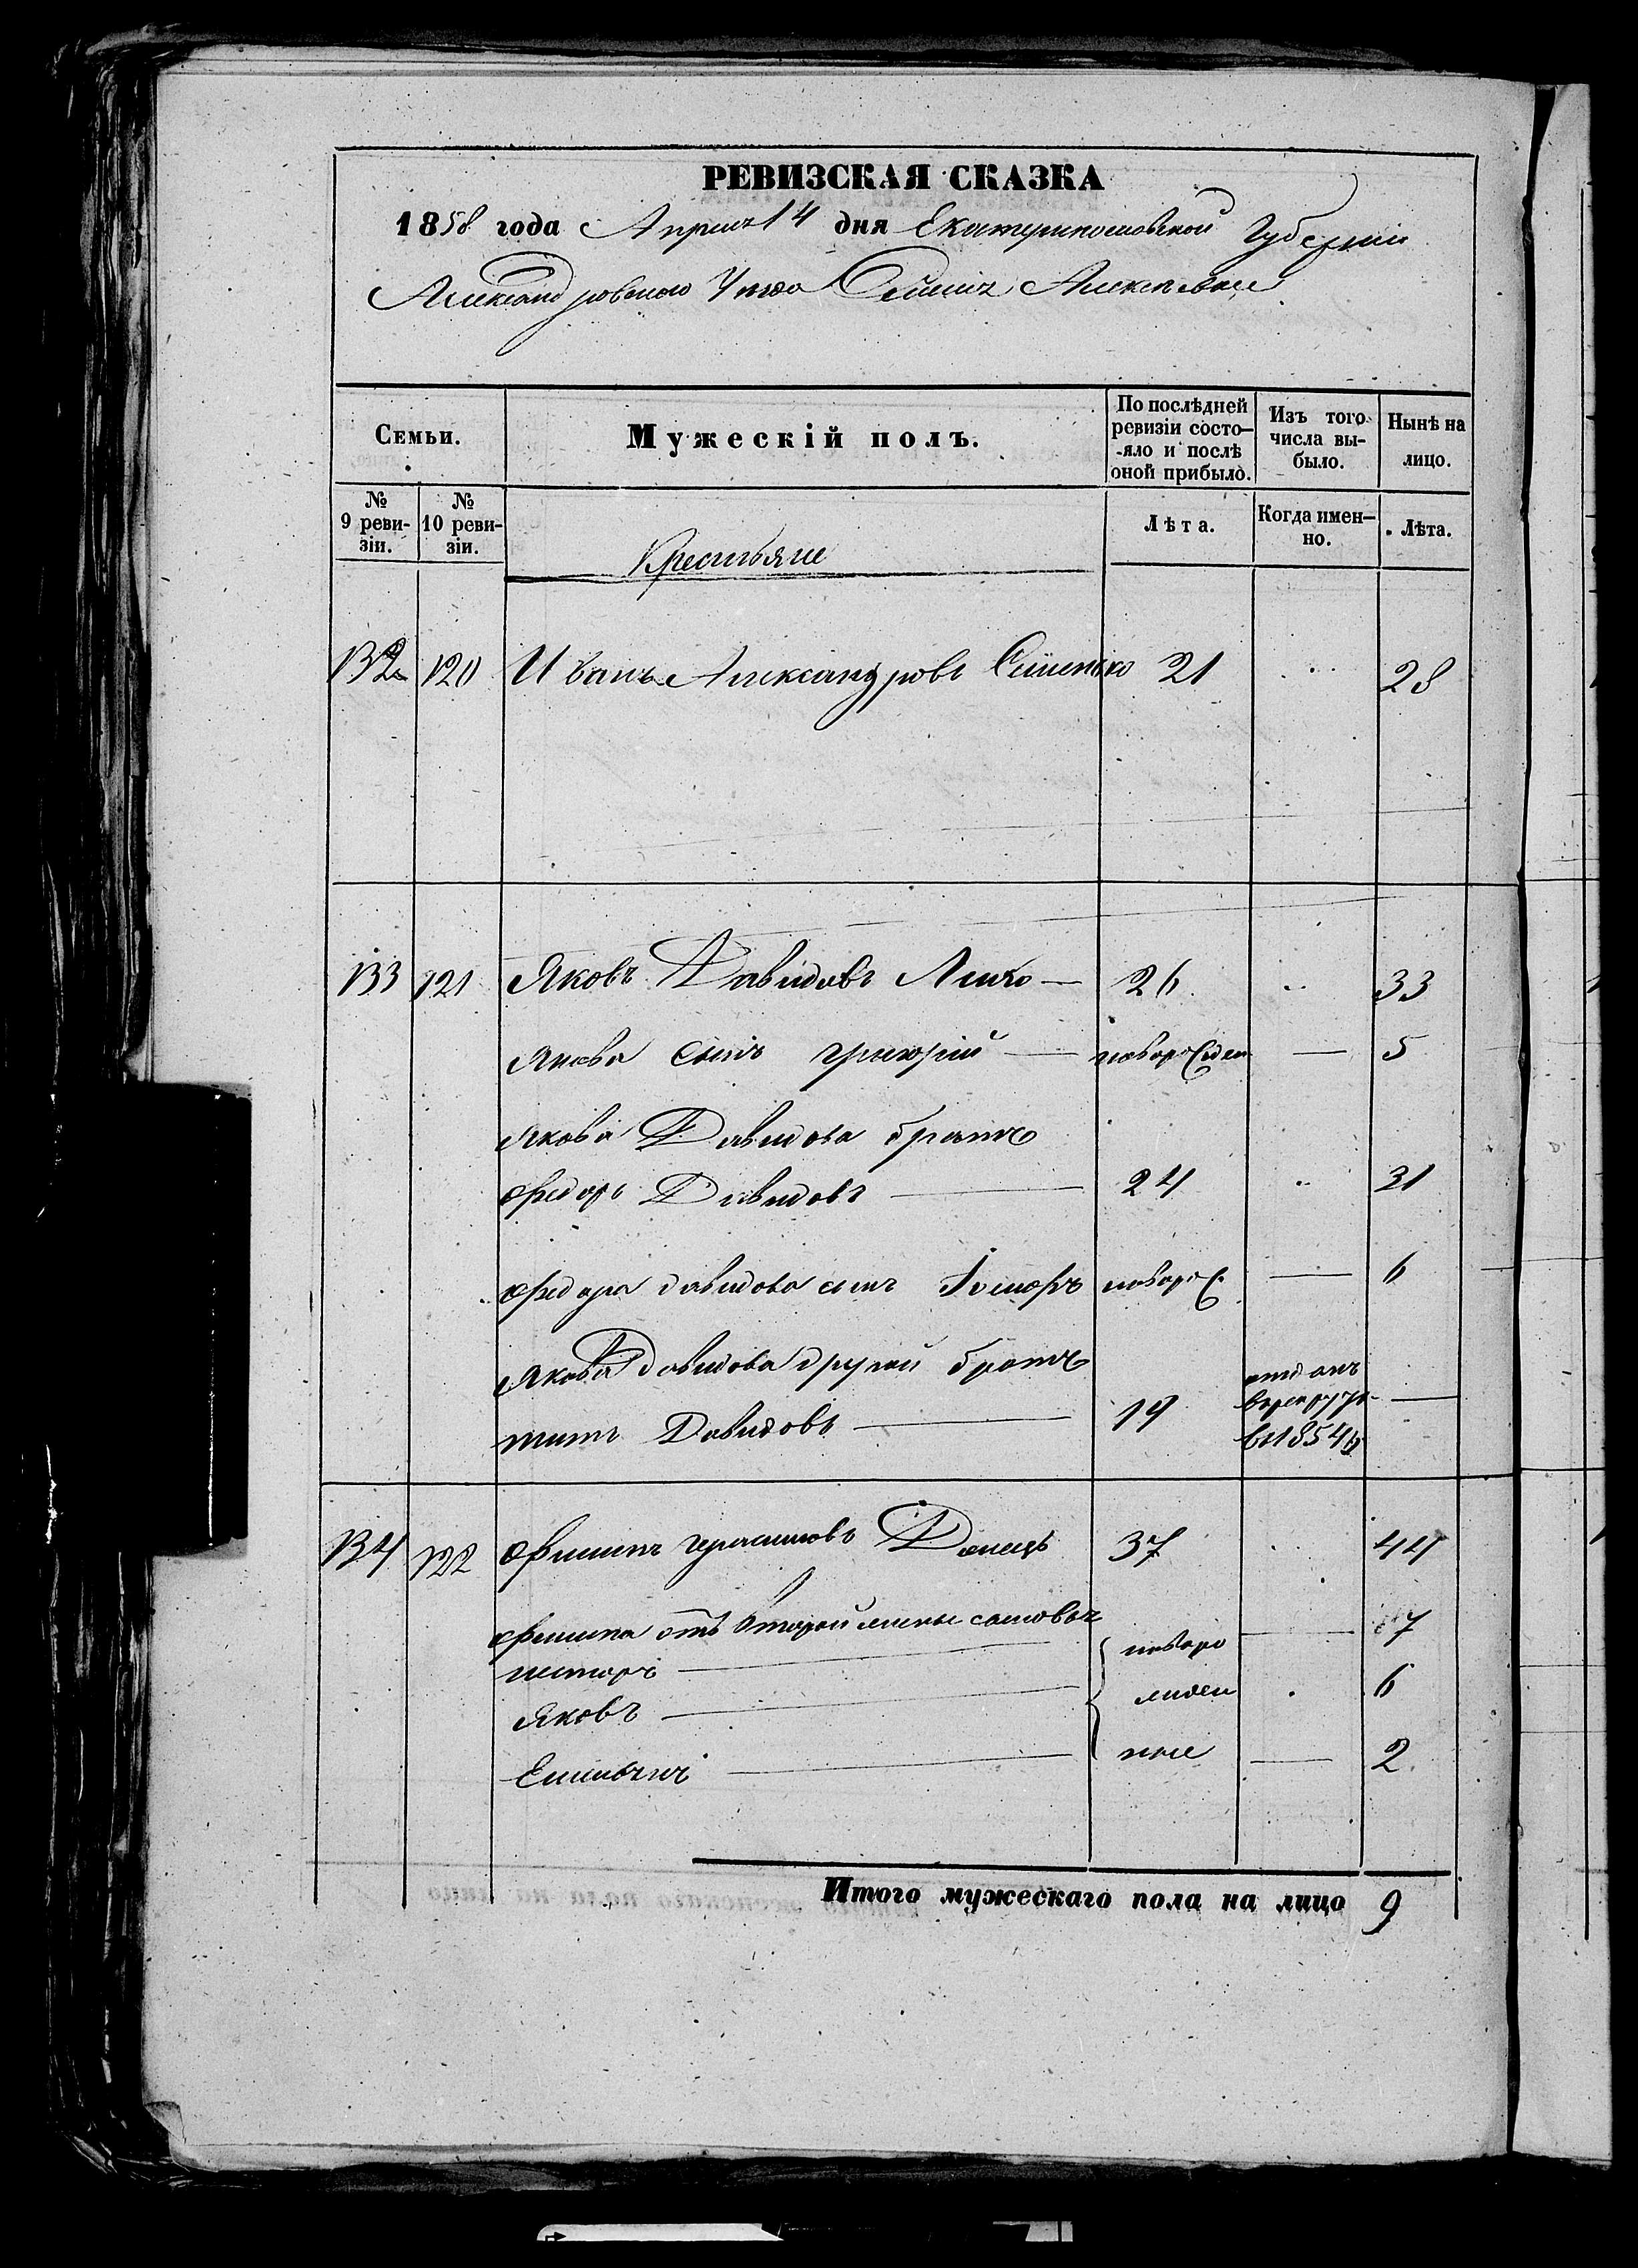 РЕВИЗСКАЯ СКАЗКА
1858 года Апреля 14 дня Екатеринославской Губернии
Александровского Уезда
Семьи.
Мужескій полъ.
По послѣдней ревизіи состо-
-яло и послѣ
оной прибыло.
Изъ того
числа вы-
было.
Нынѣ на
лицо.
№
9 реви-
зіи.
№
10 реви-
зіи.
Крестьяне
Лѣта.
Когда имен-
но.
Лѣта.
132 120 Иванъ Александровъ 21 28
133 121 Яковъ Давидовъ 26 33
Якова сынъ григорий новорожден 5
Якова Давидова братъ
Федоръ Давидовъ 24 31
Федора давидова сынъ новорож. 6
Якова Давидова другой братъ
титъ Давидовъ 19 отданъ
в рекруты
въ 1854
134 122 Филипъ герасимовъ Донецъ 37 44
Филипа отъ второй жены сыновья 7
несторъ новоро
Яковъ жден 6
Емельянъ ные 2
Итого мужескаго пола на лицо 9